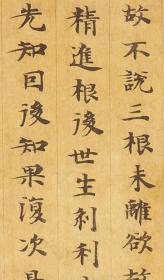 故不說三根未離欲
精進根後世生剎利
先知因後知果復次